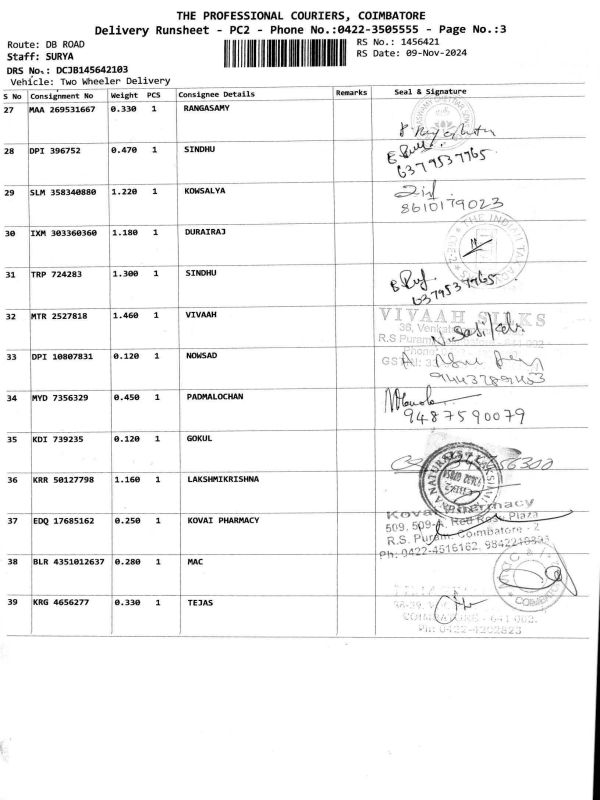 THE PROFESSIONAL COURIERS, COIMBATORE
Delivery Runsheet - PC2 - Phone No.:0422-3505555 - Page No.:3
Route: DB ROAD
RS No.: 1456421
Staff: SURYA
RS Date: 09-Nov-2024
DRS No.: DCJB145642103
Vehicle: Two Wheeler Delivery
S No Consignment No Weight PCS Consignee Details Remarks Seal & Signature
27 MAA 269531667 0.330 1 RANGASAMY
28 DPI 396752 0.470 1 SINDHU
6379537765
29 SLM 358340880 1.220 1 KOWSALYA
8610179023
30 IXM 303360360 1.180 1 DURAIRAJ
THE INDIAN TAX
31 TRP 724283 1.300 1 SINDHU
6379537765
32 MTR 2527818 1.460 1 VIVAAH
VIVAAH SILKS
R.S Puram
33 DPI 10807831 0.120 1 NOWSAD
34 MYD 7356329 0.450 1 PADMALOCHAN
9487590079
35 KDI 739235 0.120 1 GOKUL
36 KRR 50127798 1.160 1 LAKSHMIKRISHNA
37 EDQ 17685162 0.250 1 KOVAI PHARMACY
Kovai Pharmacy
509, 509-A, Red Rose Plaza
R.S. Puram, Coimbatore - 2
Ph: 0422-4516162,
38 BLR 4351012637 0.280 1 MAC
39 KRG 4656277 0.330 1 TEJAS
COIMBATORE - 641 002.
Ph: 0422-4202823